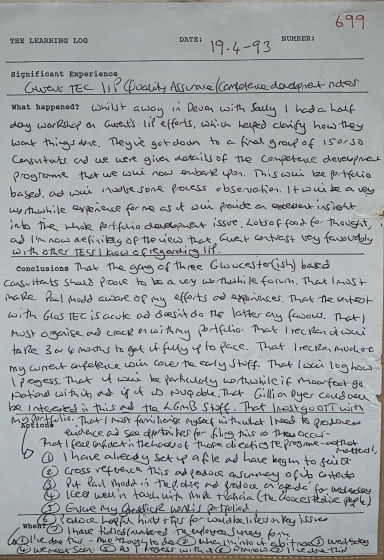 699
THE LEARNING LOG DATE: 19-4-93 NUMBER:
Significant Experience
Gwent TEC IIP Quality Assurance/Competence development notes
What happened? Whilst away in Devon with Sally I had a half
day workshop on Gwent's IIP efforts, which helped clarify how they
want things done. They've got down to a final group of 15 or so
Consultants and we were given details of the Competence development
programme that we will now embark upon. This will be portfolio
based, and will involve some process observation. It will be a very
worthwhile experience for me as it will provide an excellent insight
into the whole portfolio development issue. Lots of food for thought,
and I'm now definitely of the view that, Gwent contrast very favourably
with other TECs I know of regarding IIP.
Conclusions That the gang of three Gloucester(ish) based
consultants should prove to be a very worthwhile forum. That I must
make Paul Modd aware of my efforts and experiences. That the contrast
with Glos TEC is acute and doesn't do the latter any favours. That I
must organise and crack on with my portfolio. That I reckon it will
take 3 or 4 months to get it fully up to pace. That I reckon much of
my current experience will cover the early stuff. That I will log how
I progress. That it will be particularly worthwhile if
National with it, and if it is NVQable. That Gillian Dyer could well
be interested in this and the LGMB stuff. That I must go OTT with
my portfolio. That I must familiarise myself with what I need to produce
Options evidence and see opportunities for filing this as they occur.
That I feel confident in the hands of those directing the programme - and that
matters!
① I have already set up a file and have begun to fill it
② Cross reference this and produce a summary of its contents
③ Put Paul Modd in the picture and produce an agenda for Wednesday
④ Keep well in touch with (the Gloucestershire people)
⑤ Ensure my portfolio.
⑥ Produce helpful hints & tips for would be likes on key issues
When? ⑦
① I've done this ③ Wednesday
④ ⑤ As I progress with it ⑥